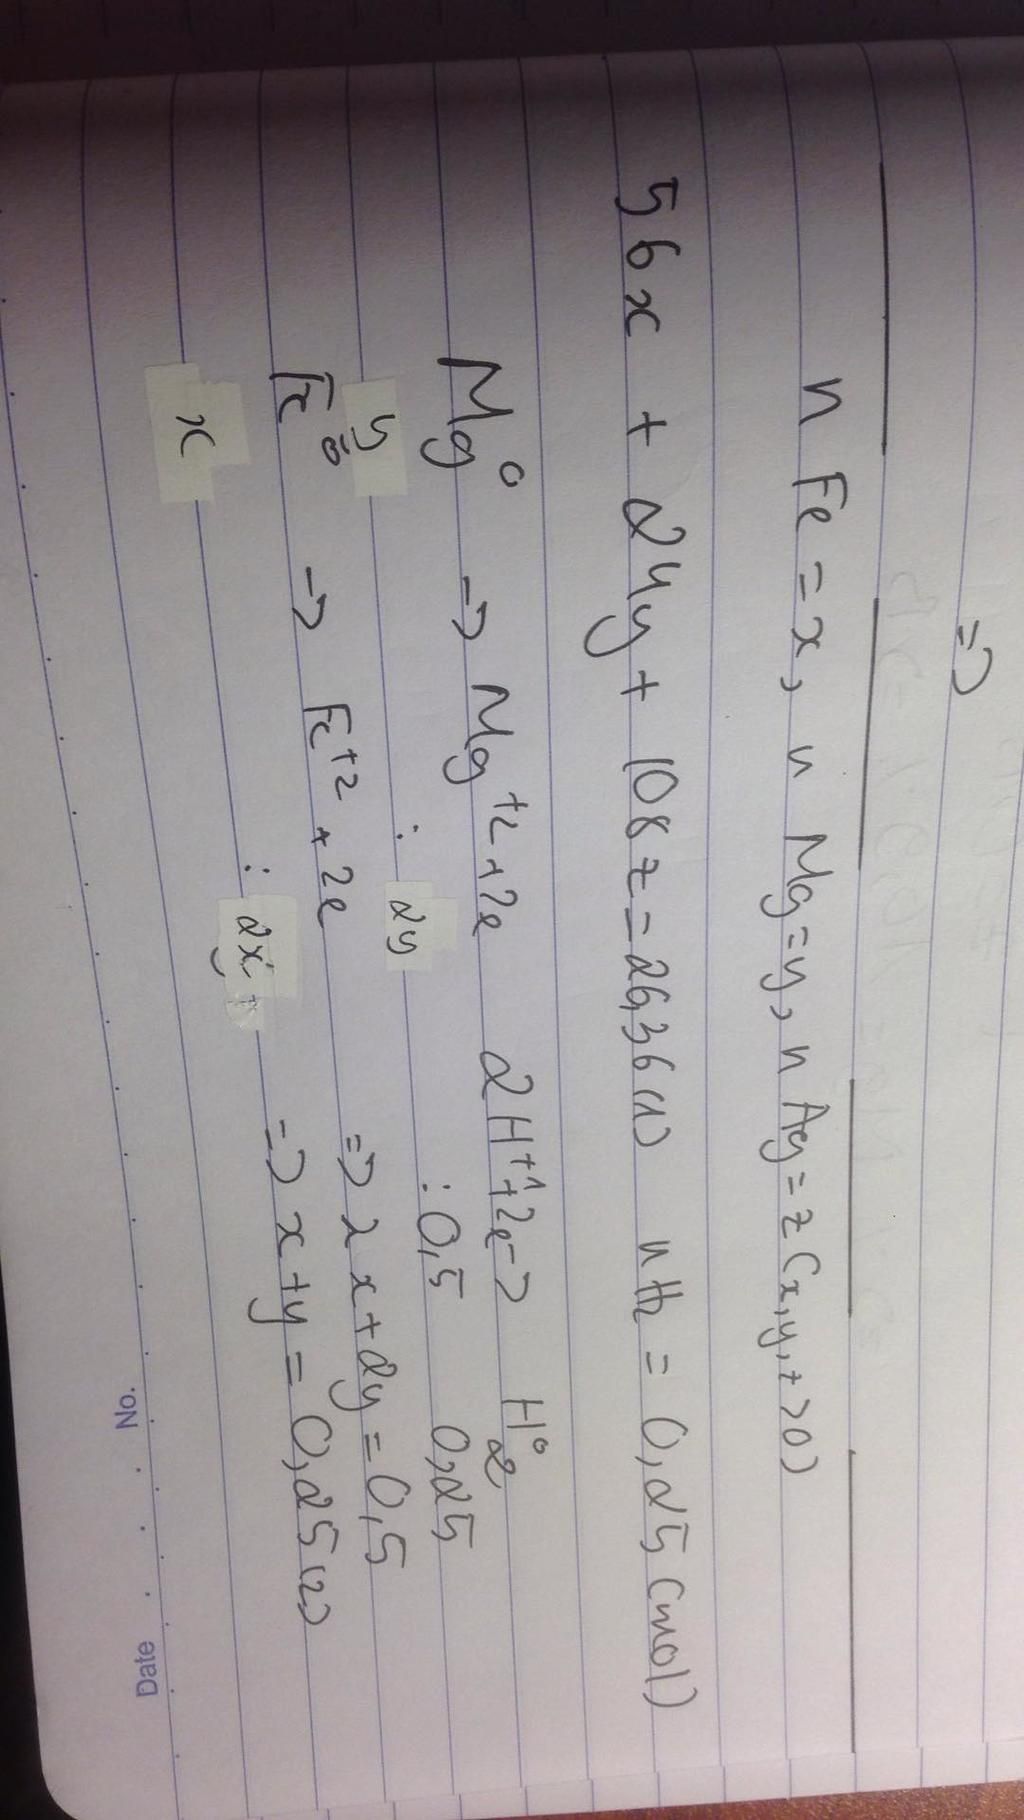 =>
n Fe = x, n Mg = y, n Ag = z (x, y, z > 0)
56x + 24y + 108z = 26,36 (1) nH₂ = 0,25 (mol)
Mg⁰ → Mg⁺² + 2e 2H⁺¹ + 2e → H₂⁰
y : 2y : 0,5 0,25
Fe⁰ → Fe⁺² + 2e => 2x + 2y = 0,5
x : 2x => x + y = 0,25 (2)
No.
Date